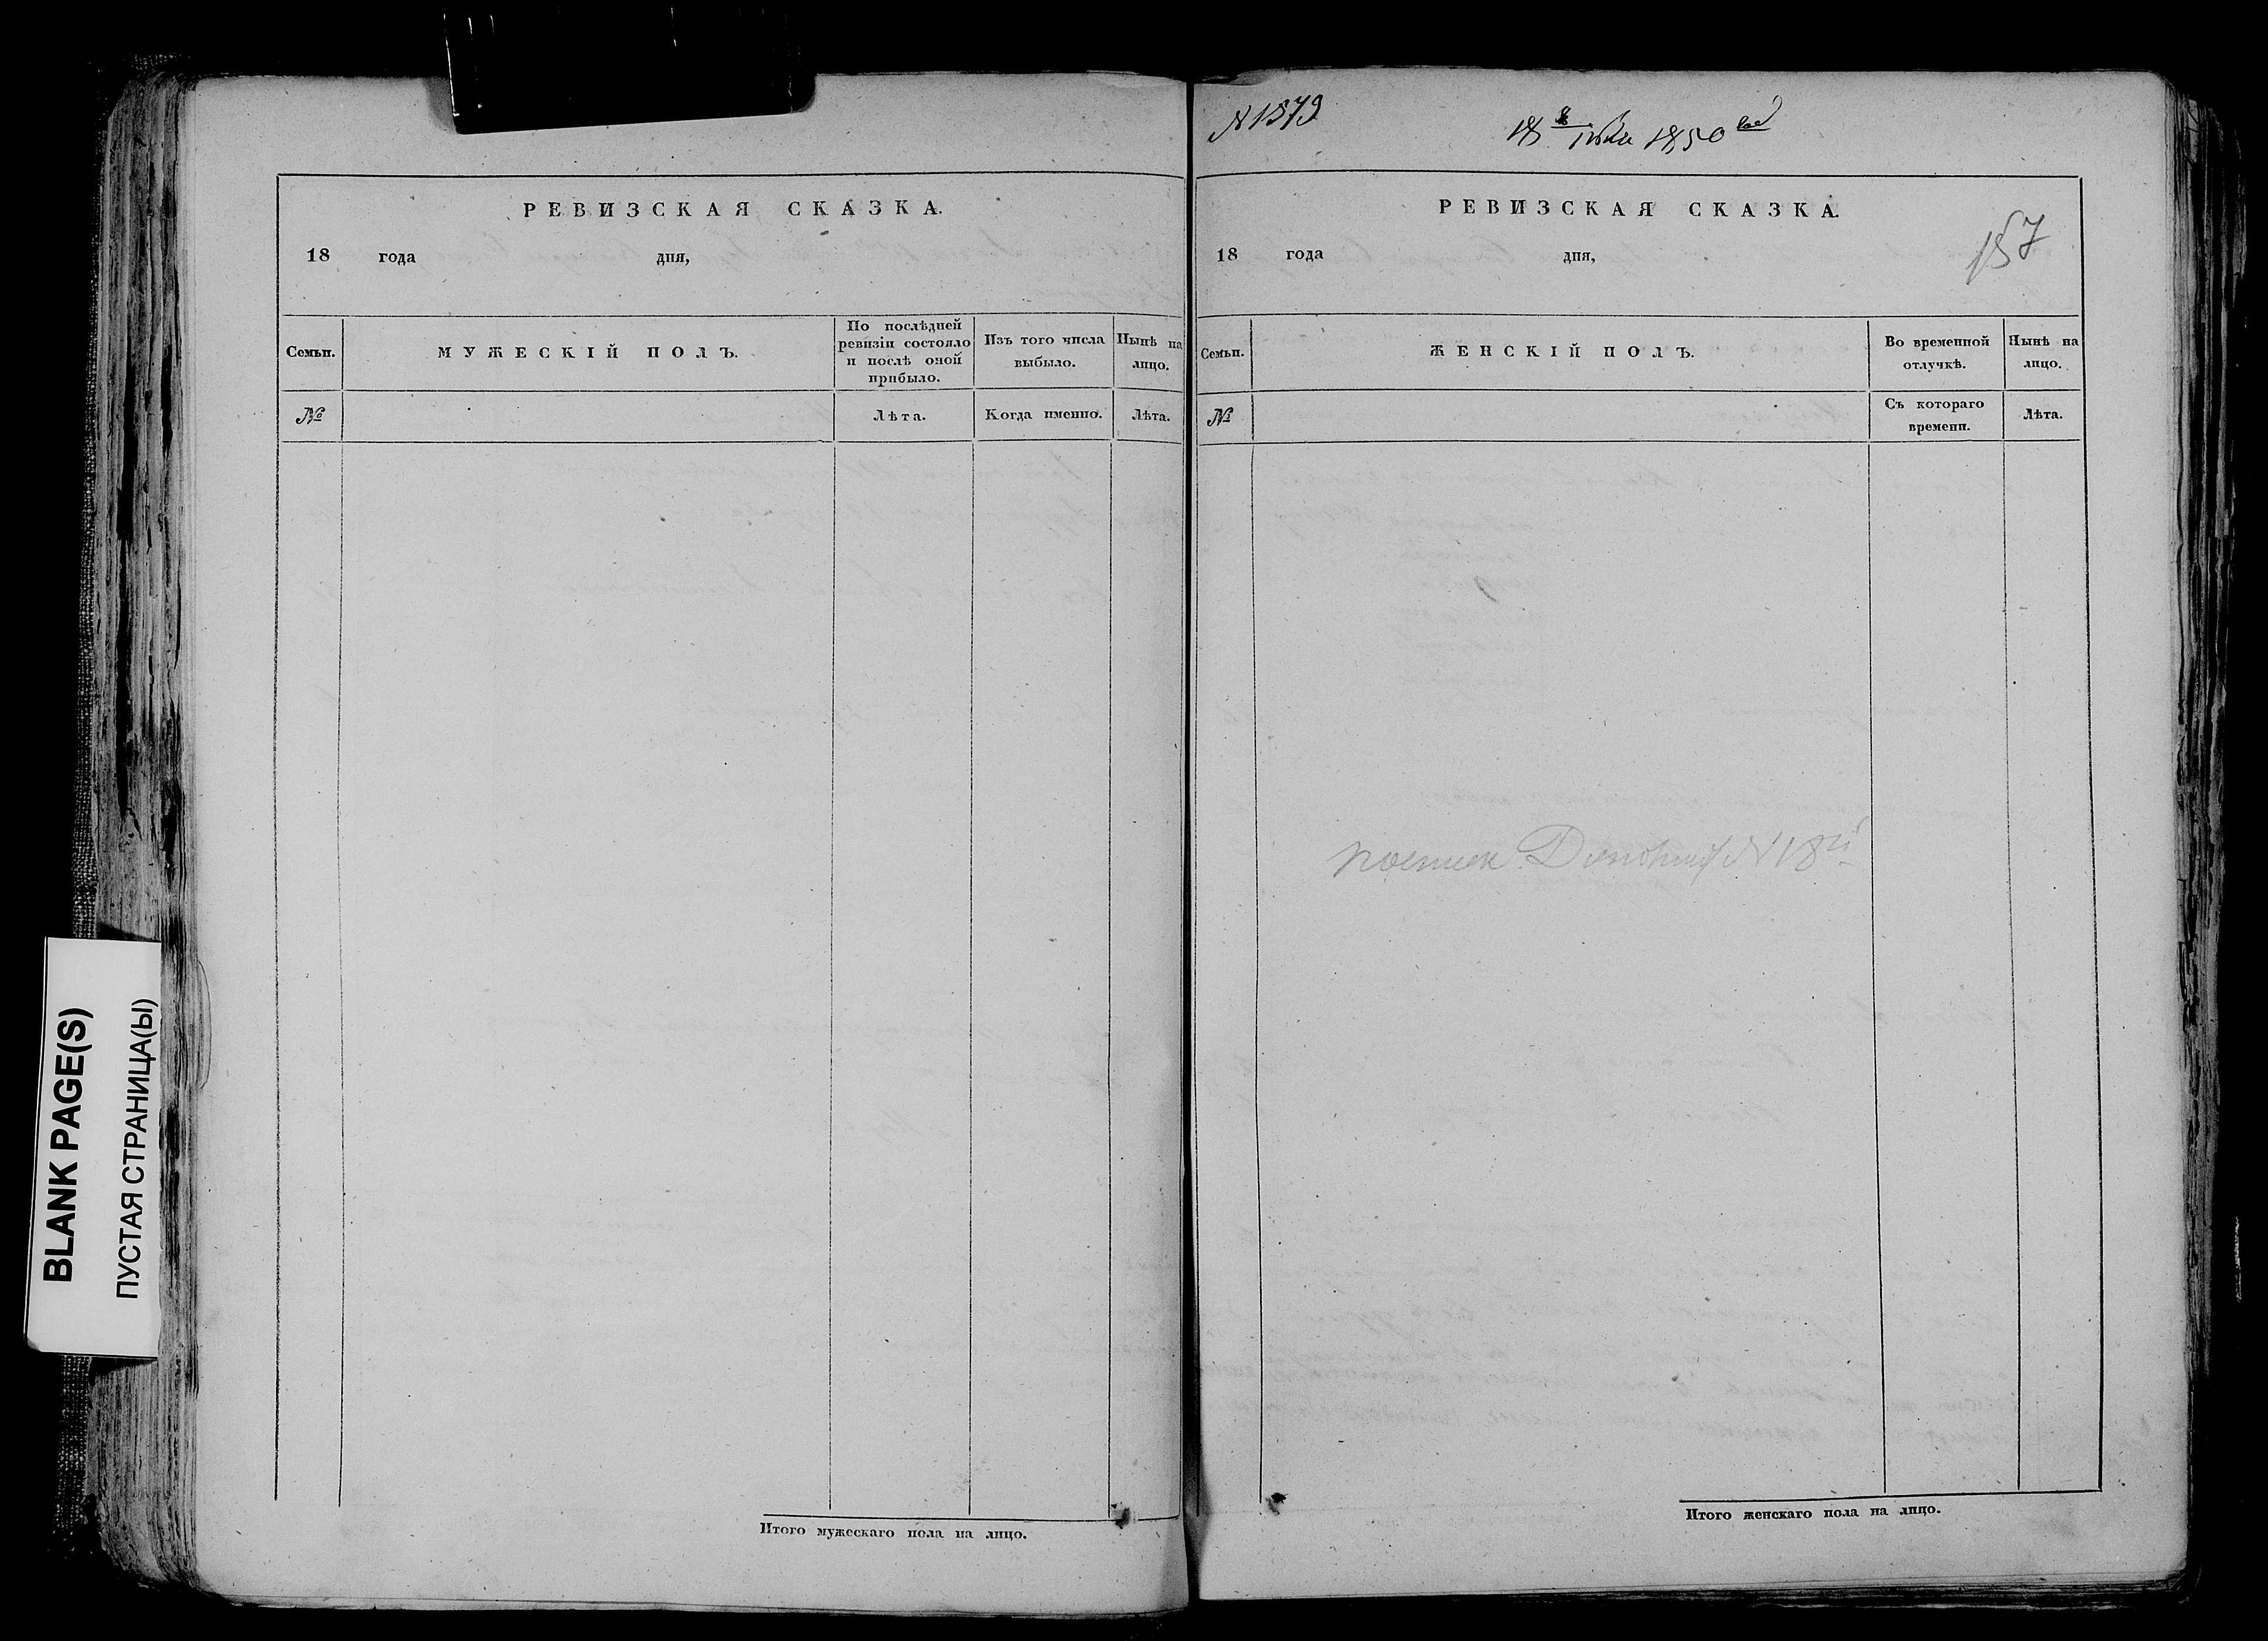 РЕВИЗСКАЯ СКАЗКА.
18 года дня,
Семьи.
МУЖЕСКІЙ ПОЛЪ.
По послѣдней
ревизіи состояло
и послѣ оной
прибыло.
Изъ того числа
выбыло.
Нынѣ на
лицо.
№
Лѣта.
Когда именно.
Лѣта.
Итого мужескаго пола на лицо.
N 1879
1850
РЕВИЗСКАЯ СКАЗКА.
18 года дня,
157
Семьи.
ЖЕНСКІЙ ПОЛЪ.
Во временной
отлучкѣ.
Нынѣ на
лицо.
№
Съ котораго
времени.
Лѣта.
N 18
Итого женскаго пола на лицо.
BLANK PAGE(S)
ПУСТАЯ СТРАНИЦА(Ы)